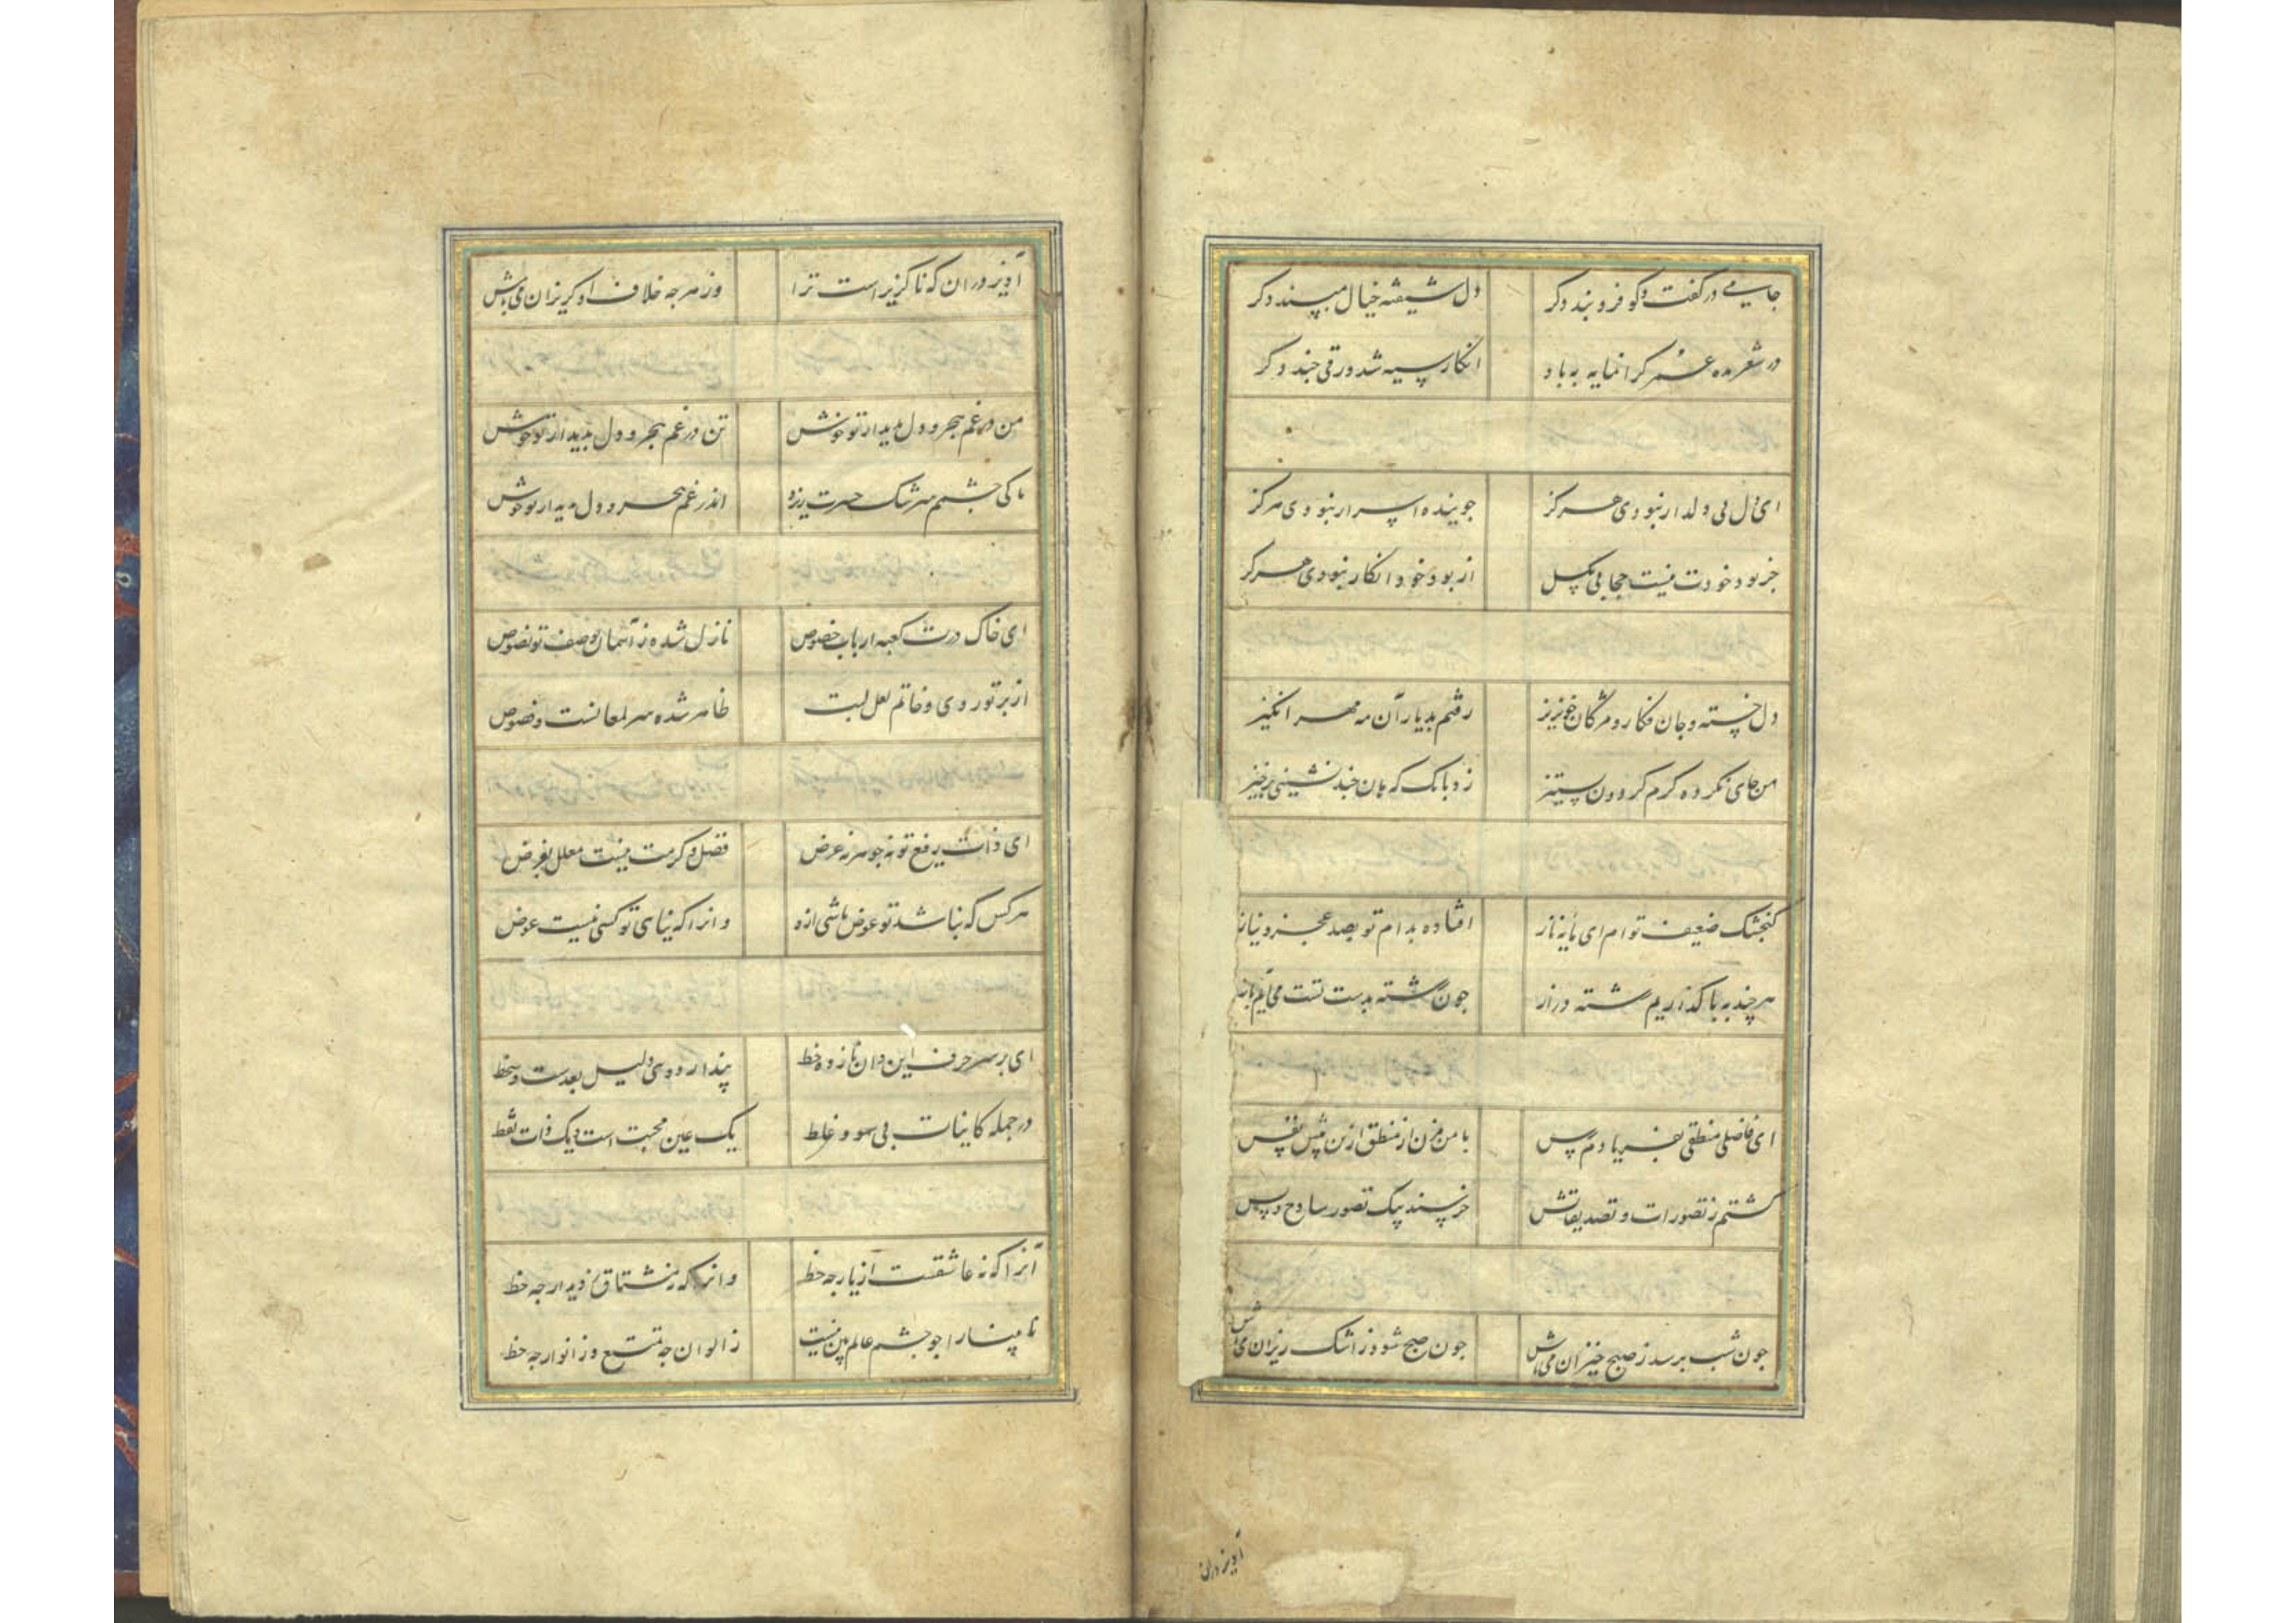 جامی در گفت و گو فرو بند دگر دل شیفته خیال مپسند دگر
در شعر مده عمر گرانمایه به باد انگار سیه شد ورقی چند دگر
ای دل بی دلدار نبودی هرگز جوینده اسرار نبودی هرگز
جز بود خودت نیست حجابی بگسل از بود خود انگار نبودی هرگز
دل خسته و جان فکار و مژگان خونریز رفتم بدیار آن مه مهر انگیز
من جای نکرده گرم گردون ستیز زد بانگ که هان چند نشینی برخیز
گنجشک ضعیف توام ای مایه ناز افتاده بدام تو بصد عجز و نیاز
هر چند به پا گذاریم رشته دراز چون رشته بدست تست می آیم باز
ای فاضل منطقی بفریادم رس با من مزن از منطق ازین پیش نفس
گشتم ز تصورات و تصدیقاتش خرسند بیک تصور ساذج و بس
چون شب برسد ز صبح خیزان می باش چون صبح شود ز اشک ریزان می باش
آویز دران
آویز دران که ناگزیر است ترا وز هر چه خلاف او گریزان می باش
من در غم هجر و دل بدیدار تو خوش تن در غم هجر و دل بدیدار تو خوش
تا کی چشمم سرشک حسرت ریزد اندر غم هجر و دل بدیدار تو خوش
ای خاک درت کعبه ارباب خصوص نازل شده ز آسمان بوصف تو نصوص
از پرتو روی و خاتم لعل لبت ظاهر شده سر لمعانست و فصوص
ای ذات رفیع تو نه جوهر نه عرض فضل و کرمت نیست معلل بغرض
هر کس که نباشد تو عوض باشی ازو وانرا که نباشی تو کسی نیست عوض
ای بر سر حرف این و آن نازده خط پندار دویی دلیل بعدست و سخط
در جمله کاینات بی سهو و غلط یک عین محبت است و یک ذات فقط
آنرا که نه عاشقست از یار چه حظ وانرا که نه مشتاق ز دیدار چه حظ
نابینا را چو چشم عالم بین نیست ز الوان چه تمتع و ز انوار چه حظ